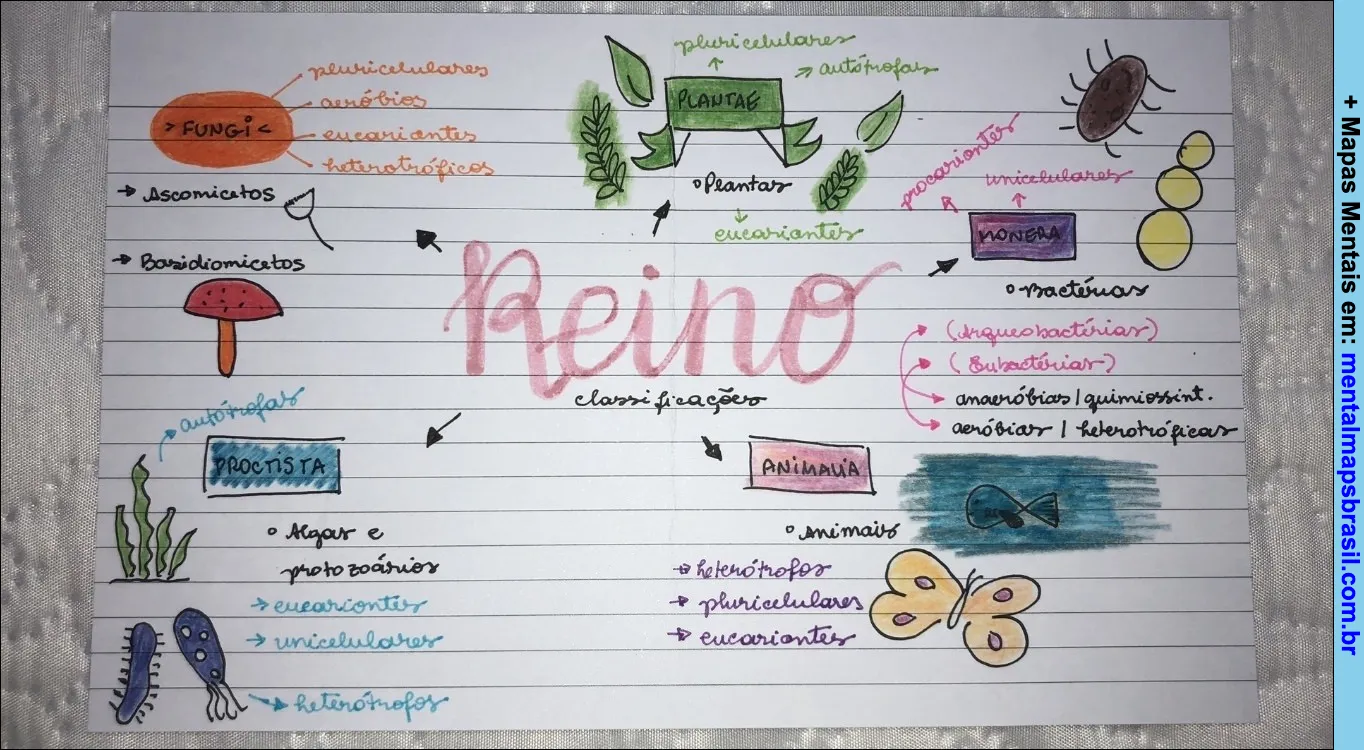 > FUNGI <
pluricelulares
aeróbios
eucariontes
heterotróficos
→ Ascomicetos
→ Basidiomicetos
pluricelulares
autótrofas
PLANTAE
Plantas
eucariontes
procariontes
unicelulares
MONERA
Bactérias
(Arqueobactérias)
(Eubactérias)
anaeróbias / quimiossint.
aeróbias / heterotróficas
Reino
classificações
autótrofas
PROCTISTA
Algas e
protozoários
→ eucariontes
→ unicelulares
→ heterótrofos
ANIMALIA
Animais
→ heterótrofos
→ pluricelulares
→ eucariontes
+ Mapas Mentais em: mentalmapsbrasil.com.br